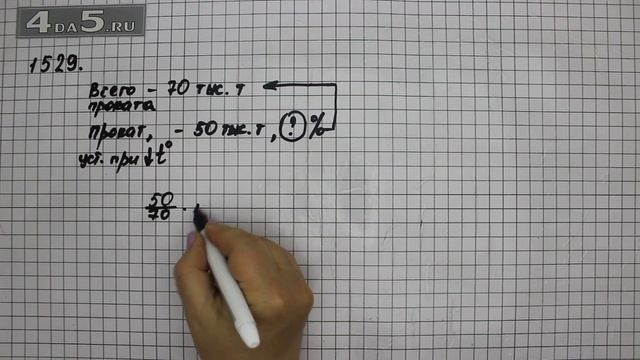 4DA5.RU
1529.
Всего – 70 тыс. т
проката
Прокат, – 50 тыс. т, ? %
уст. при ↓t°
50/70 ·